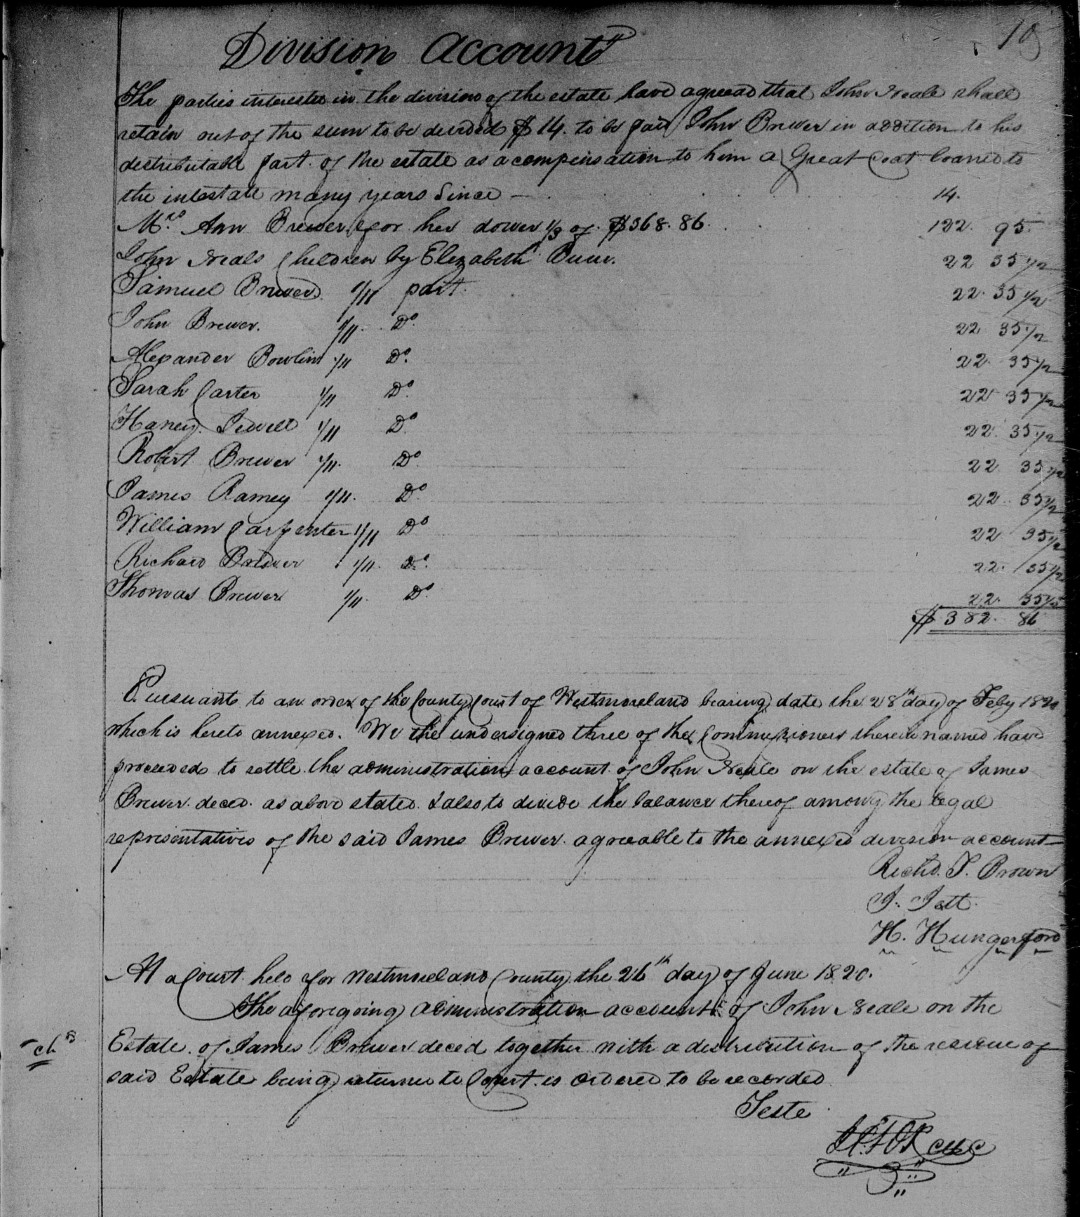 Division Account
The parties interested in the division of the estate have agreed that John Neale shall
retain out of the sum to be divided $14. to be paid John Brewer in addition to his
distributable part of the estate as a compensation to him a Great Coat loaned to
the intestate many years since — 14.
Mrs Ann Brewer for her dower 1/3 of $368.86 122 95
John Neals Children by Elizabeth 22 35 1/2
Samuel Brewer 1/11 part. 22 35 1/2
John Brewer. 1/11. Do 22 35 1/2
Alexander Bowlin 1/11 Do. 22 35 1/2
Sarah Carter 1/11 Do 22 35 1/2
Haney Jewell 1/11 Do 22 35 1/2
Robert Brewer 1/11. Do 22 35 1/2
James Ramey 1/11. Do 22 35 1/2
William Carpenter 1/11 Do 22 35 1/2
Richard Brewer 1/11. Do. 22 35 1/2
Thomas Brewer 1/11. Do 22 35 1/2
$382. 86
Pursuant to an order of the County Court of Westmoreland bearing date the 28th day of Feby 1820
which is hereto annexed. We the undersigned three of the Commissioners therein named have
proceeded to settle the administration account of John Neale on the estate of James
Brewer deced. as above stated & also to divide the balance thereof among the legal
representatives of the said James Brewer agreable to the annexed division account
Richd. T. Brown
J. Jett
H. Hungerford
At a Court held for Westmoreland County the 26th day of June 1820.
The aforegoing administration account of John Neale on the
Estate of James Brewer deced together with a distribution of the residue of
said Estate being returned to Court is ordered to be recorded
Teste